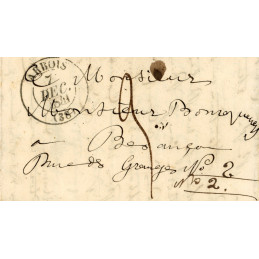 ARBOIS
7
DEC.
(38)
Monsieur
Monsieur
à
Besançon
Rue des Granges No 2
No 2.